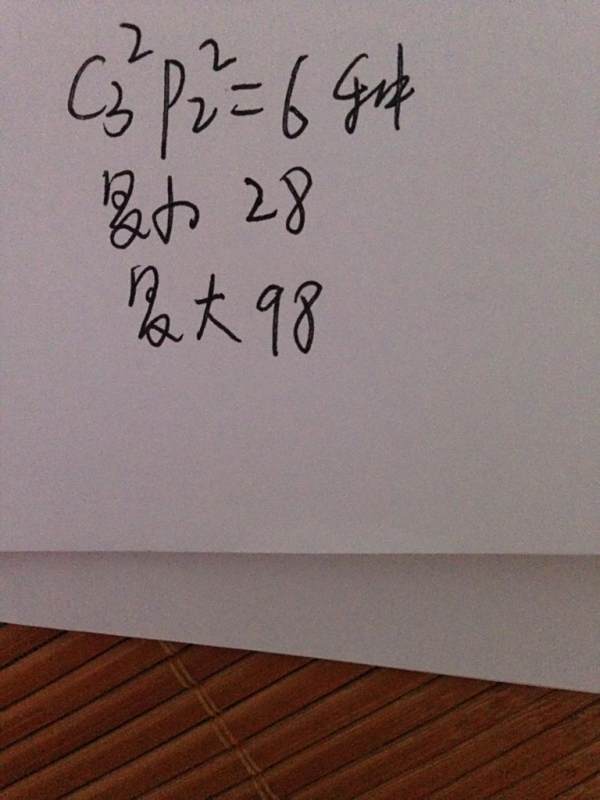 C₃²P₂²=6种
最小 28
最大 98